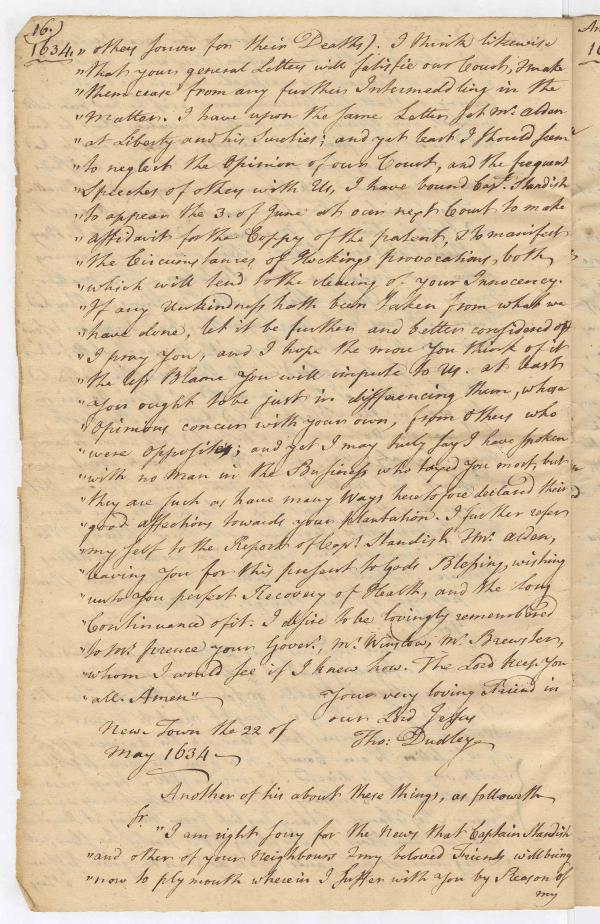 16.)
1634.
" others sorrow for their Deaths). I think likewise
" that your general Letters will satisfie our Court, & make
" them cease from any further Intermeddling in the
" Matter. I have upon the same Letters set Mr. Alden
" at Liberty and his Sureties; and yet least I should seem
" to neglect the Opinion of our Court, and the frequent
" Speeches of others with Us, I have bound Capt. Standish
" to appear the 3. of June at our next Court to make
" affidavit for the Coppy of the patent, & to manifest
" the Circumstances of Hockings provocations, both
" which will tend to the clearing of your Innocency.
" If any Unkindness hath been taken from what we
" have done, let it be further and better considered off
" I pray You, and I hope the more You think of it
" the less Blame You will impute to Us. at least
" You ought to be just in differencing them, whose
" Opinions concur with your own, from others who
" were Opposites; and yet I may truly say I have spoken
" with no man in the Business who taxed You most, but
" they are such as have many Ways heretofore declared their
" good affections towards your plantation. I further refer
" my self to the Report of Capt. Standish & Mr. Alden,
" leaving You for this present to Gods Blessing, wishing
" unto You perfect Recovery of Health, and the long
" Continuance of it: I desire to be lovingly remembered
" to Mr. prence your Goverr., Mr. Winslow, Mr. Brewster,
" whom I would see if I knew how. The Lord keep You
" all. Amen"
Your very loving Friend in
our Lord Jesus
New-Town the 22 of
Tho: Dudley
May 1634
Another of his about these things, as followeth
Sr.
" I am right sorry for the News that Captain Standish
" and other of your Neighbours & my beloved Friends will bring
" now to plymouth wherein I suffer with You by Reason of
my